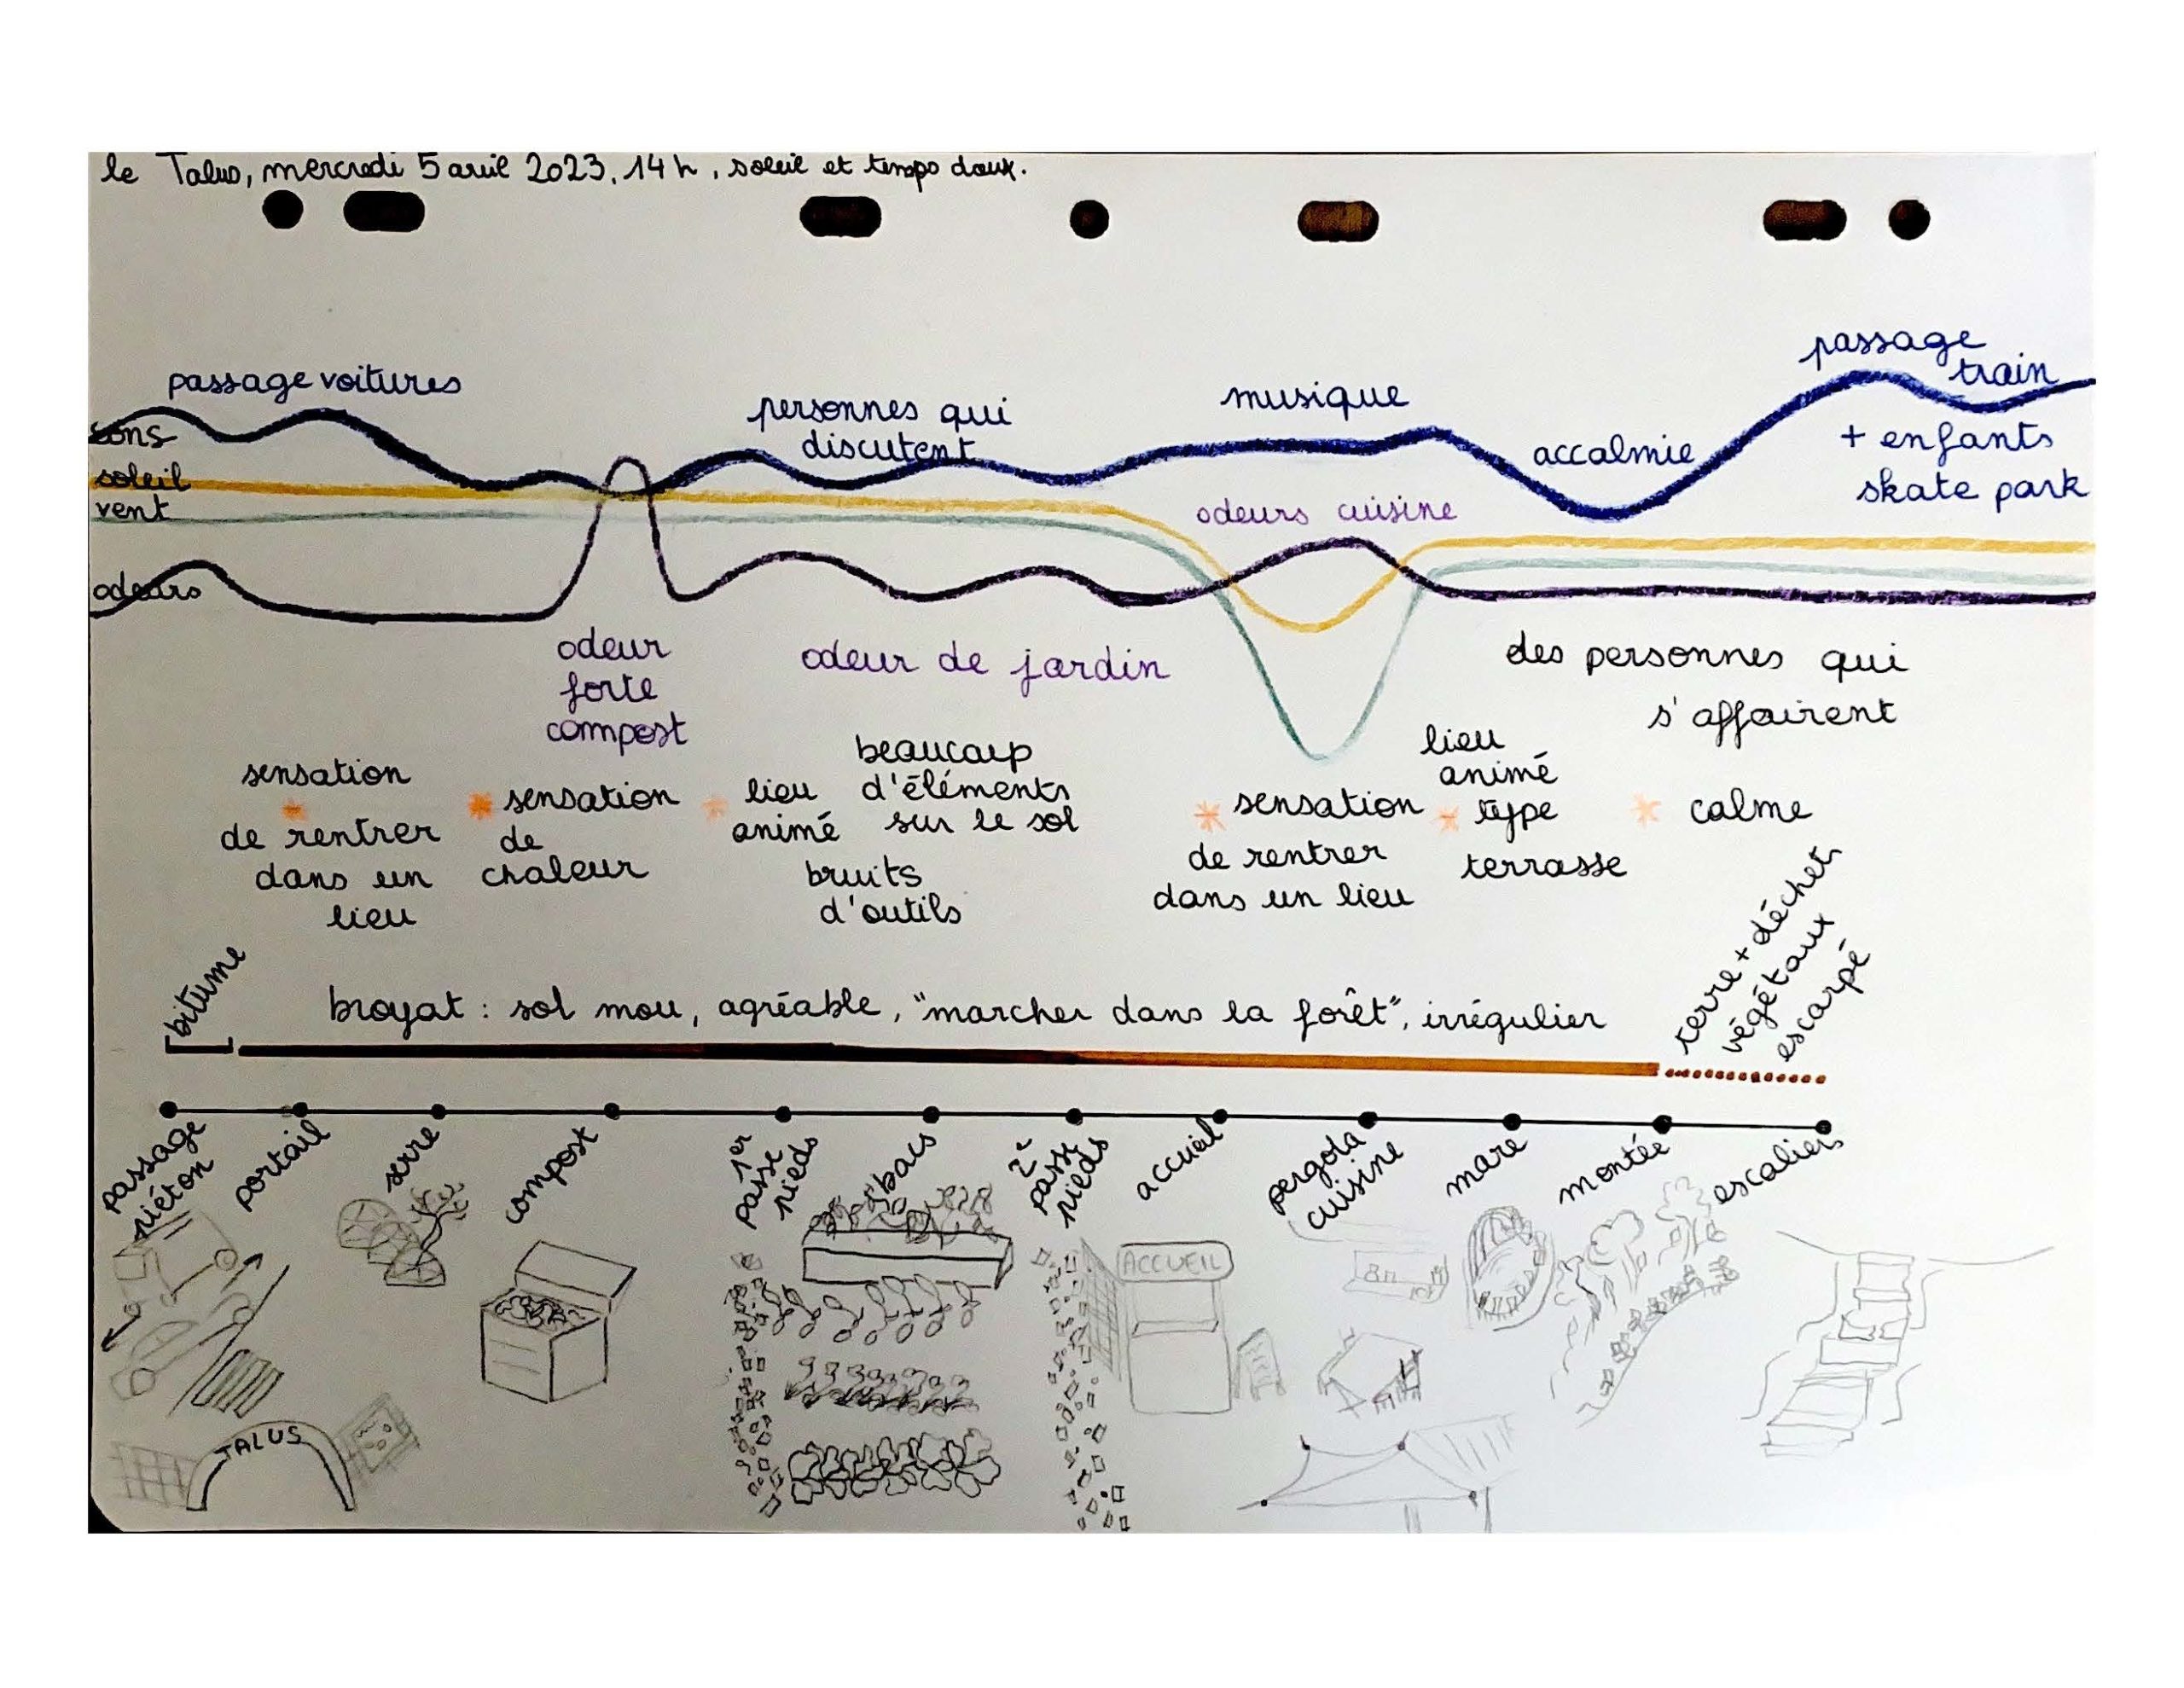 le Talus, mercredi 5 avril 2023, 14h, soleil et temps doux.
passage voitures
personnes qui
discutent
musique
accalmie
passage
train
+ enfants
skate park
sons
soleil
vent
odeurs
odeurs cuisine
odeur
forte
compost
odeur de jardin
des personnes qui
s'affairent
sensation
de rentrer
dans un
lieu
sensation
de
chaleur
lieu
animé
beaucoup
d'éléments
sur le sol
bruits
d'outils
sensation
de rentrer
dans un lieu
lieu
animé
type
terrasse
calme
bitume
broyat : sol mou, agréable, "marcher dans la forêt", irrégulier
terre + déchet
végétaux
escarpé
passage
piéton
portail
serre
compost
1er
passe
pieds
bacs
2e
passe
pieds
accueil
pergola
cuisine
mare
montée
escaliers
ACCUEIL
TALUS